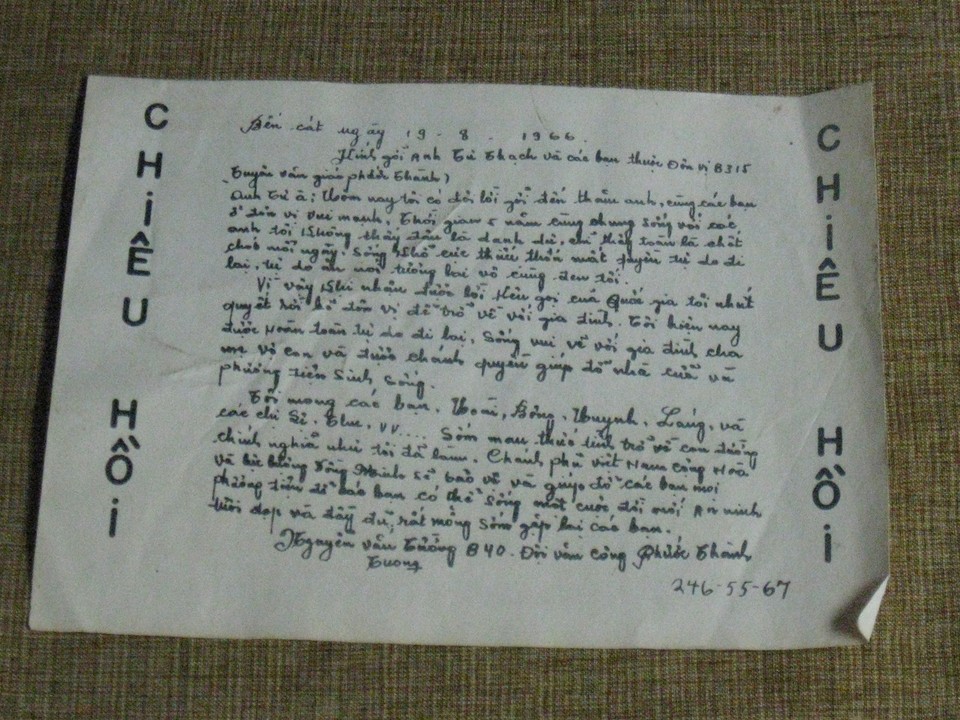 CHIÊU HỒI
Bến cát ngày 19-8-1966.
Kính gởi Anh Tư Thạch và các bạn thuộc Đơn vị B315
Tuyên văn giáo phước thành)
Anh Tư à; Hôm nay tôi có đôi lời gởi đến thăm anh, cùng các bạn
ở đơn vị vui mạnh. Thời gian 5 năm cùng chung sống với các
anh tôi không thấy đâu là danh dự, chỉ thấy toàn là chết
chóc mỗi ngày. Sống khổ cực thiếu thốn mất quyền tự do đi
lại, tự do ăn nói tương lai vô cùng đen tối.
Vì vậy khi nhận được lời kêu gọi của Quốc gia tôi nhứt
quyết rời bỏ đơn vị để trở về với gia đình. Tôi hiện nay
được hoàn toàn tự do đi lại, sống vui vẽ với gia đình cha
mẹ vợ con và được chánh quyền giúp đở nhà cửa và
phương tiện sinh sống.
Tôi mong các bạn, Hoài, Bông, Huynh, Láng, và
các chị Sĩ, Thu, vv.... Sớm mau thức tỉnh trở về con đường
chính nghĩa như tôi đã làm. Chánh phủ việt Nam cộng Hoà
và lực lượng Đồng Minh sẽ bảo vệ và giúp đở các bạn mọi
phương tiện để các bạn có thể sống một cuộc đời mới An ninh
tươi đẹp và đầy đủ, rất mong sớm gặp lại các bạn.
Nguyễn văn Tưởng B40. Đội văn công Phước Thành
Tuong
246-55-67
CHIÊU HỒI